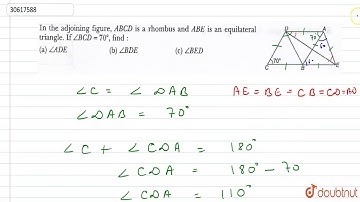 30617588
In the adjoining figure, ABCD is a rhombus and ABE is an equilateral
triangle. If ∠BCD = 70°, find :
(a) ∠ADE (b) ∠BDE (c) ∠BED
D A
70°
60°
70°
C B E
∠C = ∠DAB
AE = BE = CB = CD = AD
∠DAB = 70°
∠C + ∠CDA = 180°
∠CDA = 180° - 70
∠CDA = 110°
doubtnut